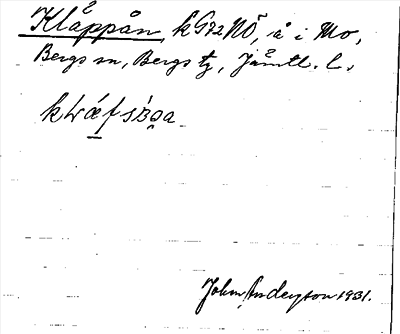 Klåppån, kG72NÖ, å i Mo,
Bergs sn, Bergs tg, Jämtl. l.

John Anderson 1931.